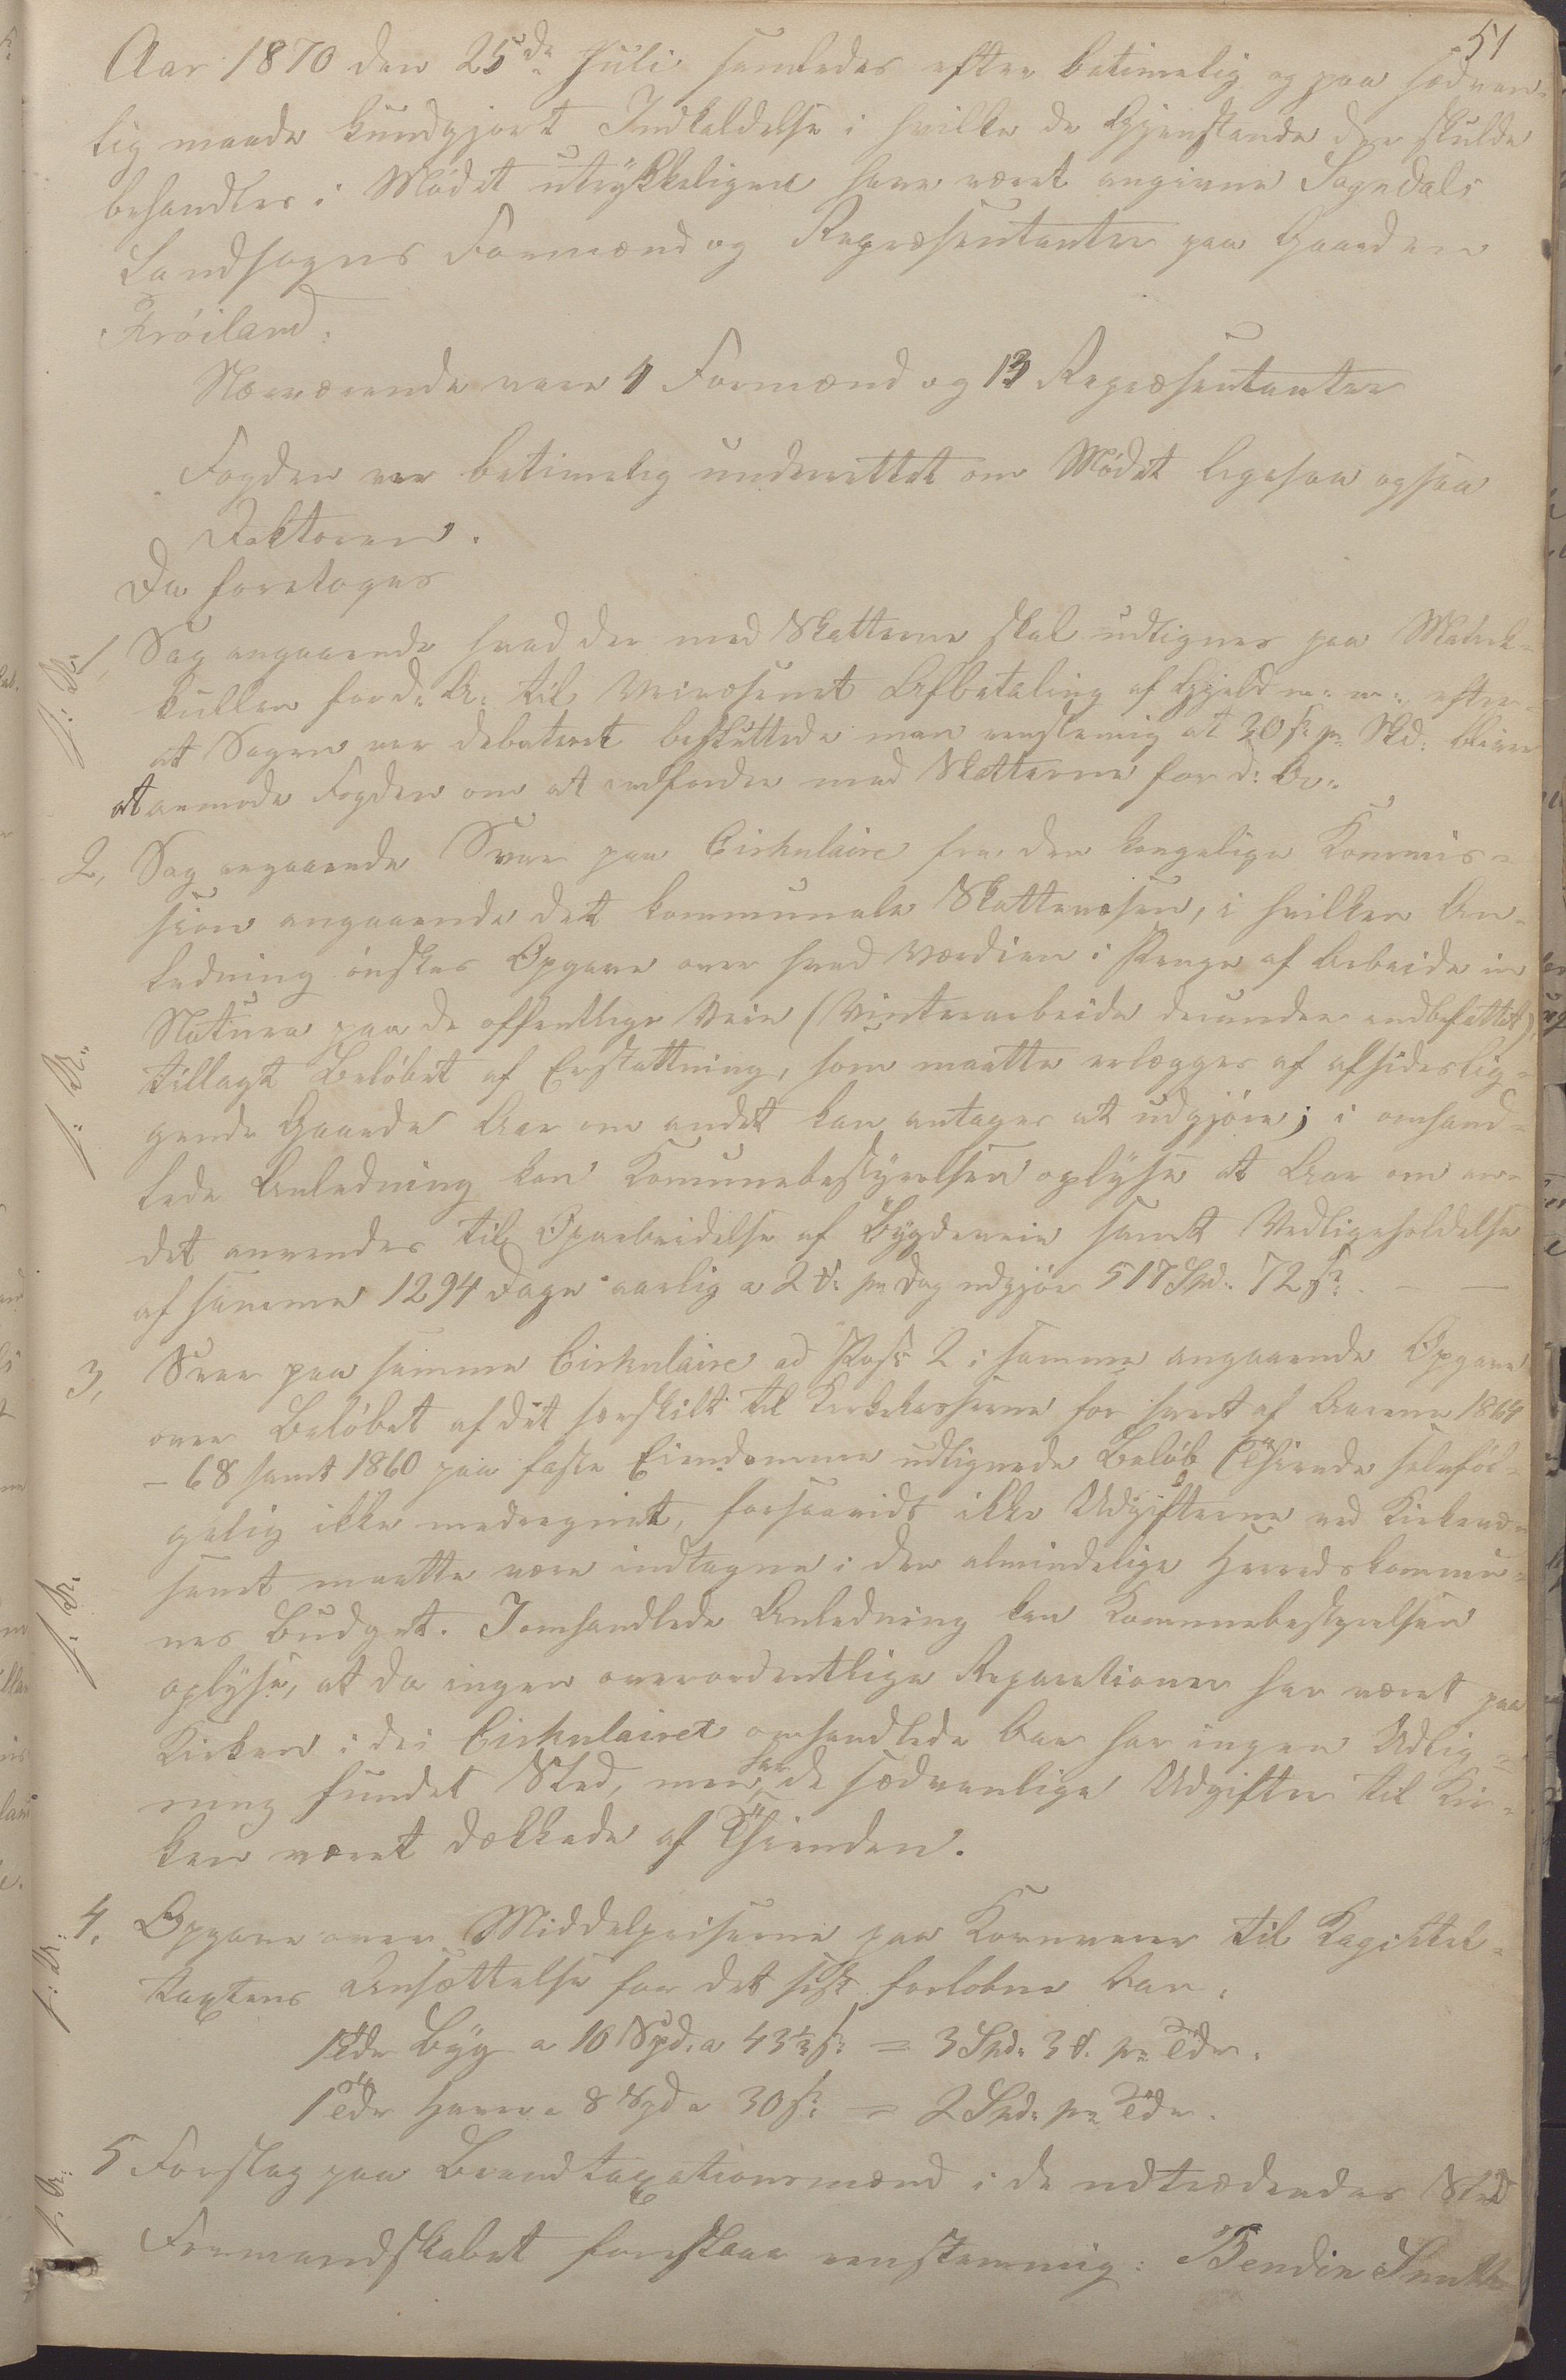 51
Aar 1870 den 25de Juli samledes efter betimelig og paa sædvan-
lig maade kundgjort Indkaldelse i hvilke de Gjenstande der skulde
behandles i Mødet utrykkeligen have været angivne Sogndals
Landsogns Formænd og Repræsentanter paa Gaarden
Frøiland.
Nærværende vare 4 Formænd og 13 Repræsentanter
Fogden var betimelig underrettet om Mødet ligesaa ogsaa
Doktoren.
Da foretoges
1, Sag angaaende hvad der med Skatterne skal udlignes paa Matrik-
kullen for d: A: til Veivæsenet Afbetaling af Gjeld m: m:, efter-
at Sagen var debateret besluttede man eenstemig at 30 s pr. Skd: bliver
at anmode Fogden om at indfordre med Skatterne for d: Ar:
2, Sag angaaende Svar paa Cirkulaire fra den kongelige Kommis-
sion angaaende det kommunale Skattevæsen, i hvilken An-
ledning ønskes Opgave over hvad Værdien i Penge af Arbeide in
Natura paa de offentlige Veie (Vinterarbeide derunder indbefattet),
tillagt Beløbet af Erstattning, som maatte erlægges af afsideslig-
gende Gaarde Aar om andet kan antages at udgjøre; i omhand-
lede Anledning kan Komunebestyrelsen oplyse at Aar om an-
det anvendes til Oparbeidelse af Bygdeveie samt Vedligeholdelse
af samme 1294 Dage aarlig a 2 ort pr Dag udgjør 517 Spd. 72 s. - -
3, Svar paa samme Cirkulaire ad Post 2 i samme angaaende Opgave
over Beløbet af det særskilt til Kirkekasserne for hvert af Aarene 1864
- 68 samt 1860 paa faste Eiendomme udlignede Beløb (Tiende selvføl-
gelig ikke medregnet, forsaavidt ikke Udgifterne ved Kirkevæ-
senet maatte være indtagne i den almindelige Herredskommu-
nes Budget. I omhandlede Anledning kan Kommunebestyrelsen
oplyse, at da ingen overordentlige Reparationer har været paa
Kirken i de i Cirkulairet omhandlede Aar har ingen Udlig-
ning fundet Sted, men har de sædvanlige Udgifter til Kir-
ken været dækkede af Thienden.
4, Opgave over Middelpriserne paa Kornvarer til Kapitel-
taxtens Ansættelse for det sist forløbne Aar.
1 Tde Byg a 16 Spd. a 43 1/2 s = 3 Spd. 3 ort pr Tde.
1 Tde Havre a 8 Spd a 30 s = 2 Spd. pr Tde.
5 Forslag paa Brandtaxationsmænd i de udtrædendes Sted
Formandskabet foreslaar eenstemmig: Bendix